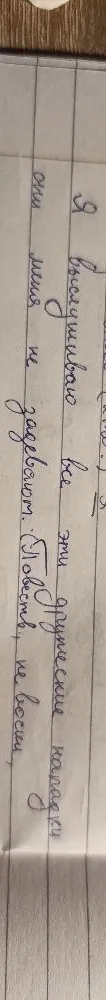 Я выслушиваю все эти дружеские нападки
они меня не задевают. (Повеств, невоскл,